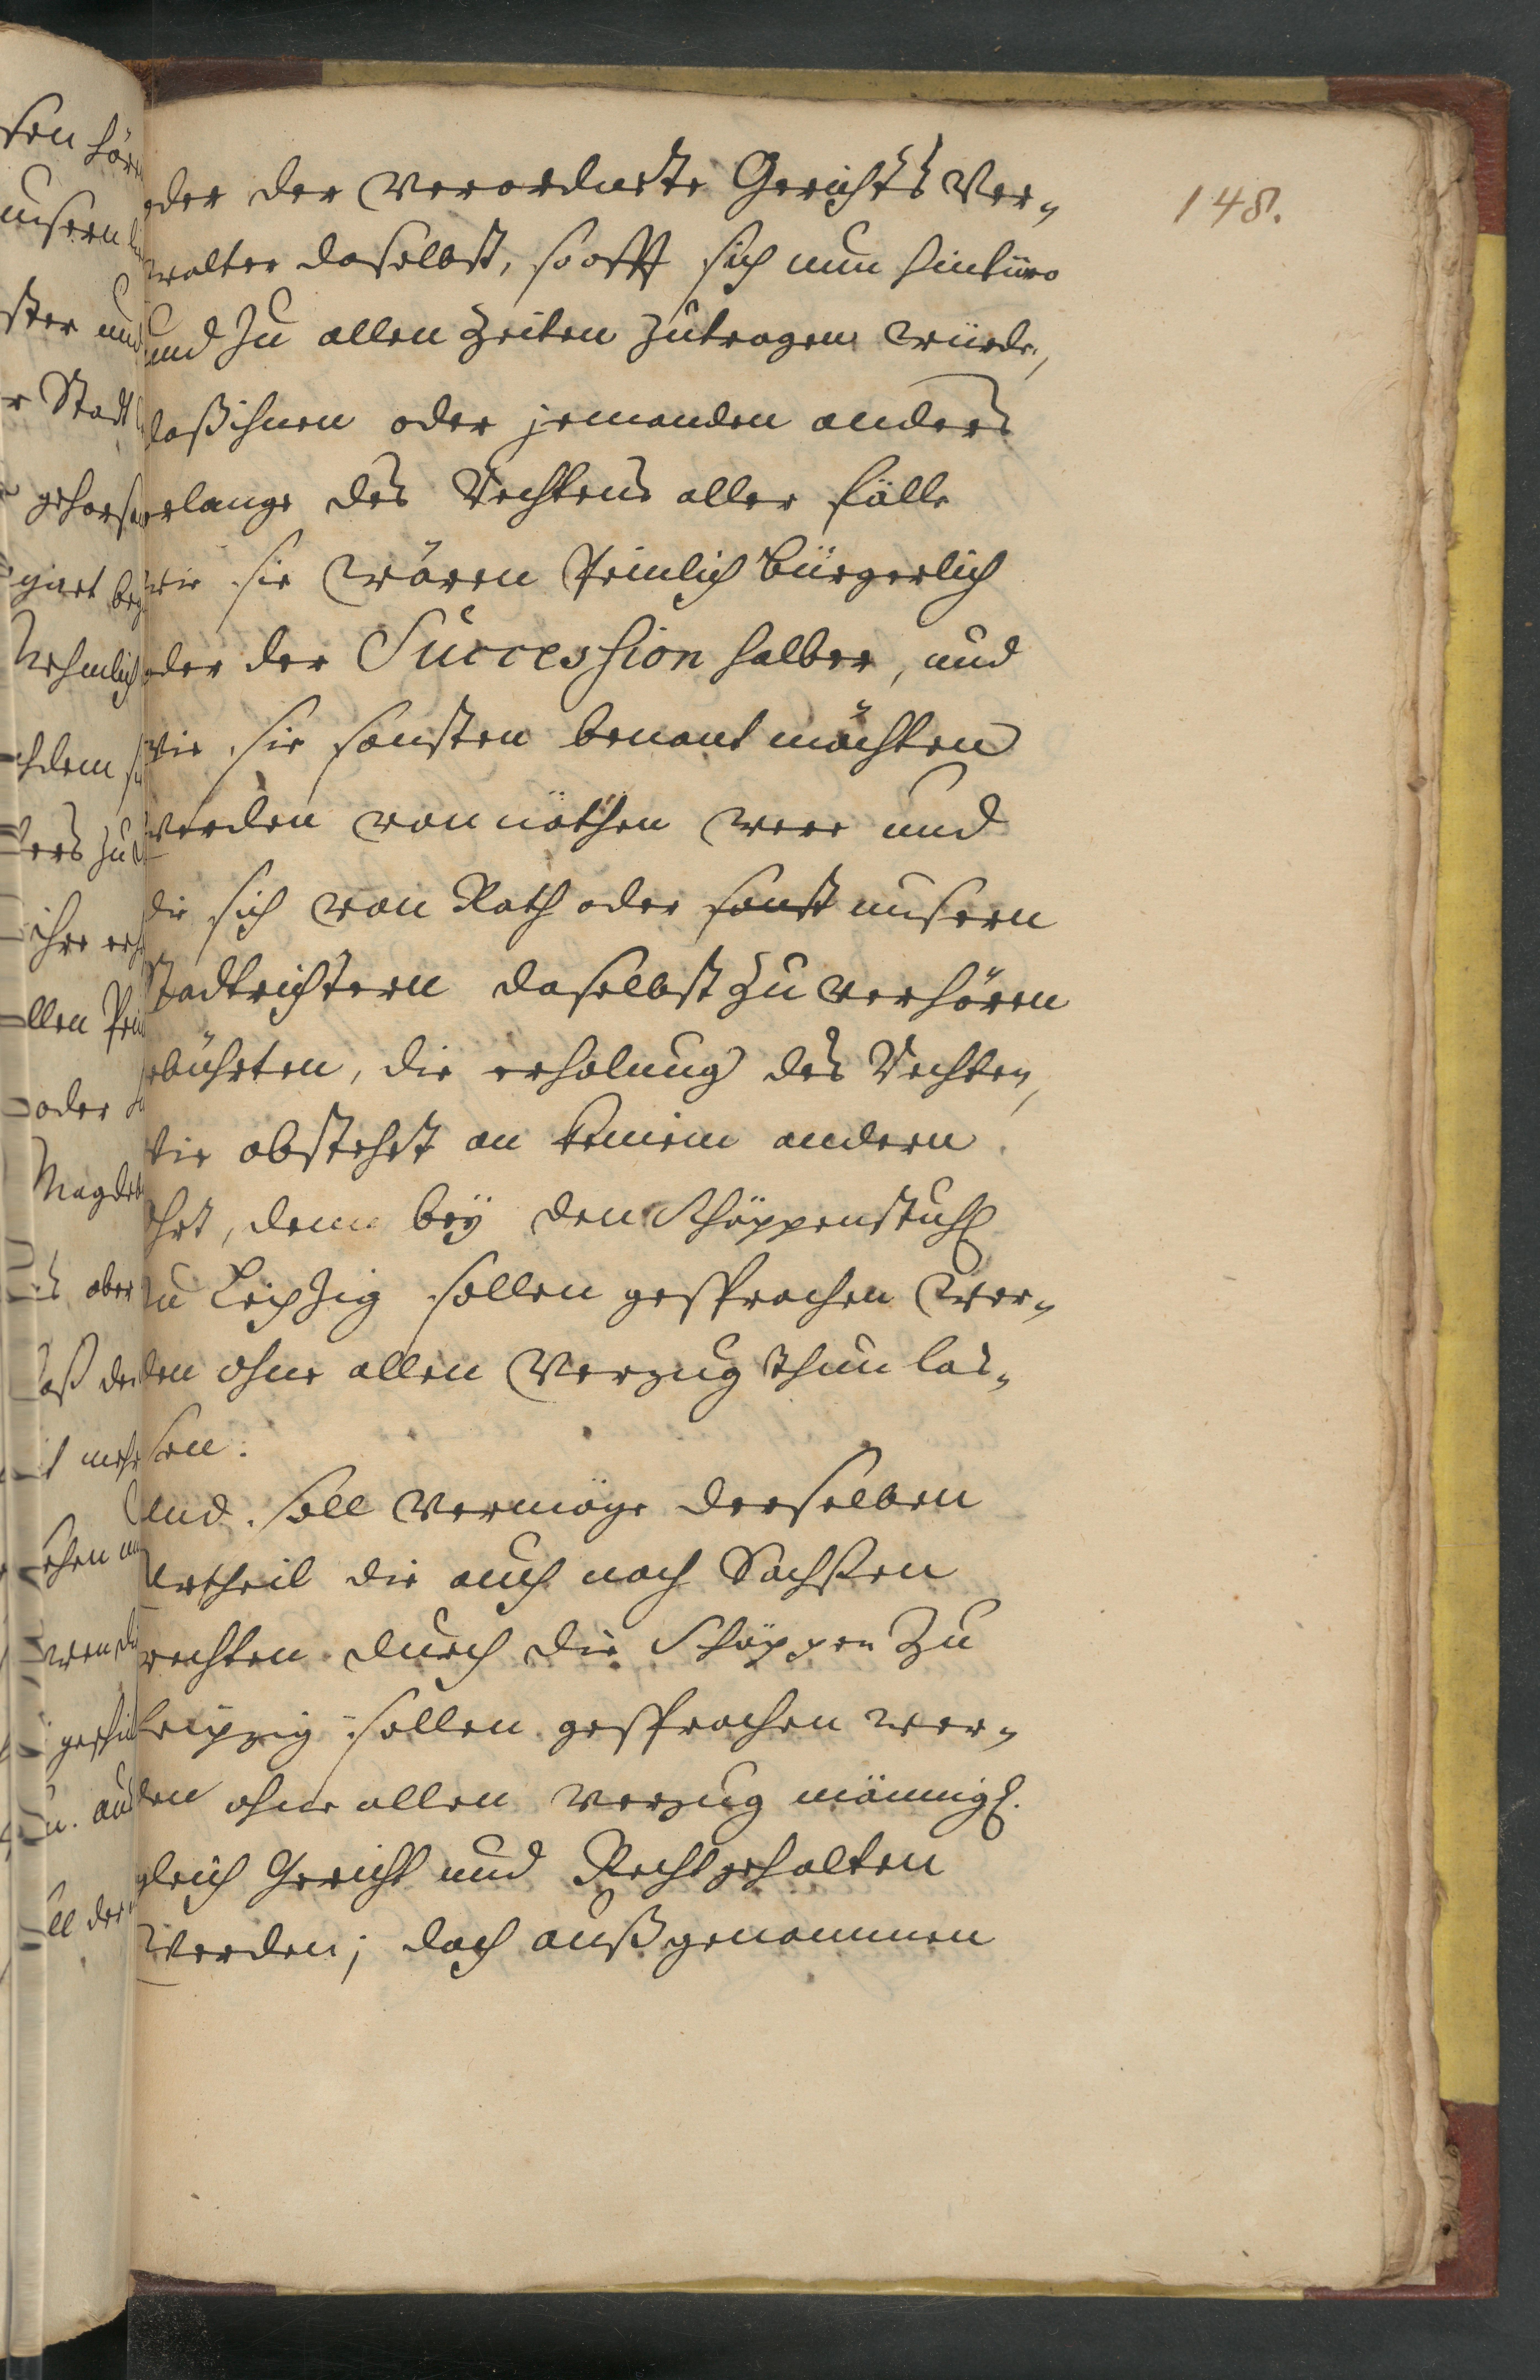 148.
oder der verordnete Gerichts Ver„
walter daselbst, so offt sich nun hinfüro
und zu allen Zeiten zutragen würde,
daß ihnen oder jemanden anders
erlange des Rechtens aller fälle
wie sie wären Peinlich Bürgerlich
oder der Succession halber, und
wie sie sonsten benant möchten
werden von nöthen were und
die sich von Rath oder sonst unsern
Stadtrichtern daselbst zu verhören
gebührten, die erholung des Rechten,
wie obstehet an keinem andern
ohrt, denn bey den Schöppenstuhl
zu Leipzig sollen gesprochen wer„
den ohne allen Verzug thun las„
sen.
Und soll vermöge derselben
Urtheil die auch nach Sachsen
rechten durch die Schöppen zu
Leipzig sollen gesprochen wer„
den ohne allen verzug männigl.
gleich Gericht und Recht gehalten
werden; doch außgenommen